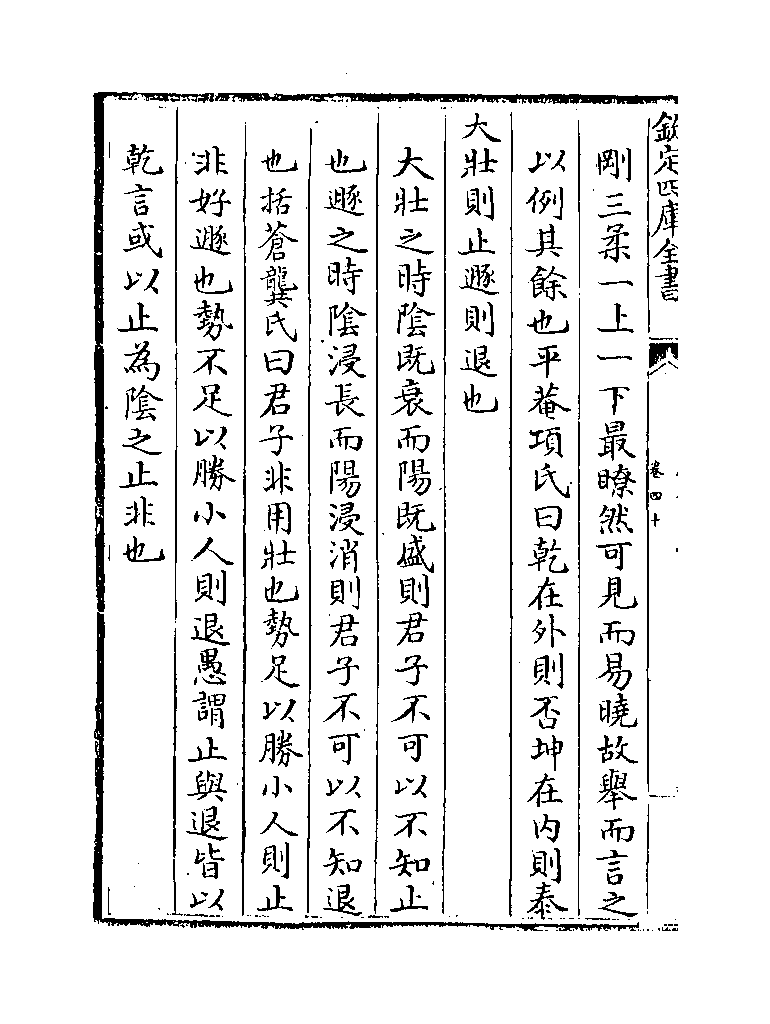 欽定四庫全書
卷四十
剛三柔一上一下最瞭然可見而易曉故舉而言之
以例其餘也平菴項氏曰乾在外則否坤在内則泰
大壯則止遯則退也
大壯之時陰既衰而陽既盛則君子不可以不知止
也遯之時陰浸長而陽浸消則君子不可以不知退
也括蒼龔氏曰君子非用壯也勢足以勝小人則止
非好遯也勢不足以勝小人則退愚謂止與退皆以
乾言或以止為陰之止非也